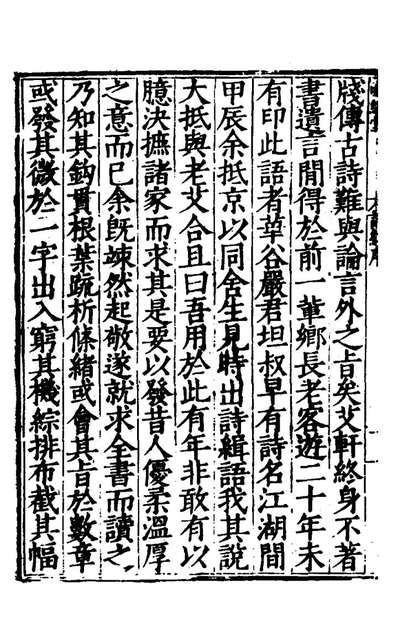 牋傳古詩難與論言外之旨矣艾軒終身不著
書遺言閒得於前一輩鄉長老客遊二十年未
有印此語者華谷嚴君坦叔早有詩名江湖間
甲辰余抵京以同舍生見時出詩緝語我其說
大抵與老艾合且曰吾用於此有年非敢有以
臆決摭諸家而求其是要以發昔人優柔溫厚
之意而已余既竦然起敬遂就求全書而讀之
乃知其鈎貫根葉疏析條緒或會其旨於數章
或發其微於一字出入窮其機綜排布截其幅